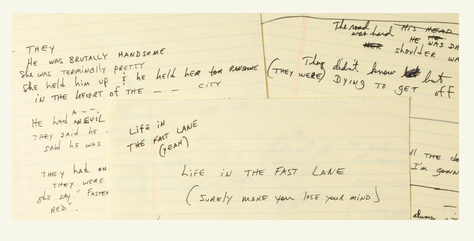 THEY
HE WAS BRUTALLY HANDSOME
She was TERMINALLY PRETTY
She held him up & he held her for RANSOME
IN THE HEART OF THE _ _ CITY
He HAD A _ _
EVIL
THEY SAID he
SAID he was
THEY HAD ON
THEY WERE
She SAY "FASTER
RED".
The road
was hard HIS HEAD
HE WAS DA
HER shoulder WA
They didn't know but
(THEY WERE) DYING TO GET off
LIFE IN
THE FAST LANE
(YEAH)
LIFE IN THE FAST LANE
(SURELY MAKE YOU LOSE YOUR MIND)
ll the do
I'm gonn
always